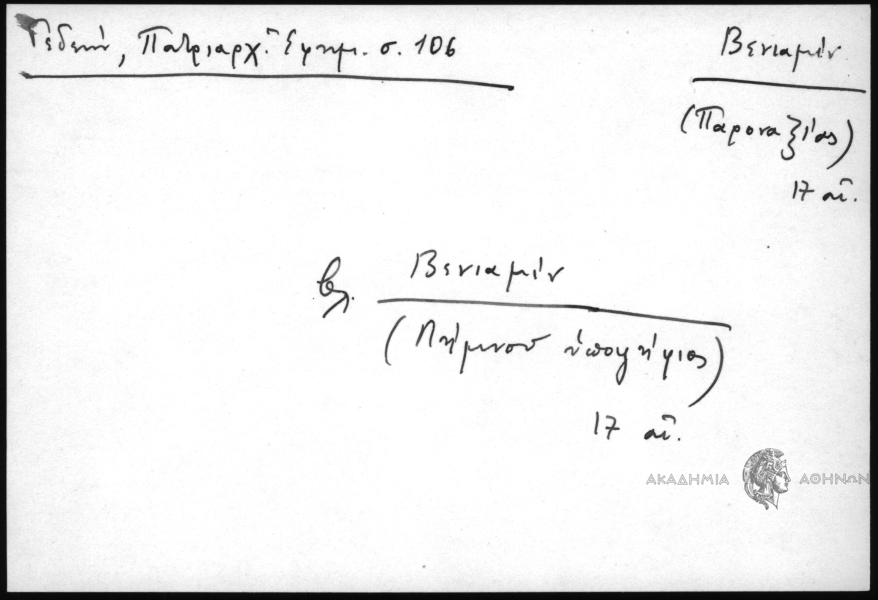 Γεδεών, Πατριαρχ. Εφημ. σ. 106
Βενιαμίν
(Παροναξίας)
17 αἰ.
βλ. Βενιαμίν
(Λήμνου ὑποψήφιος)
17 αἰ.
ΑΚΑΔΗΜΙΑ ΑΘΗΝΩΝ